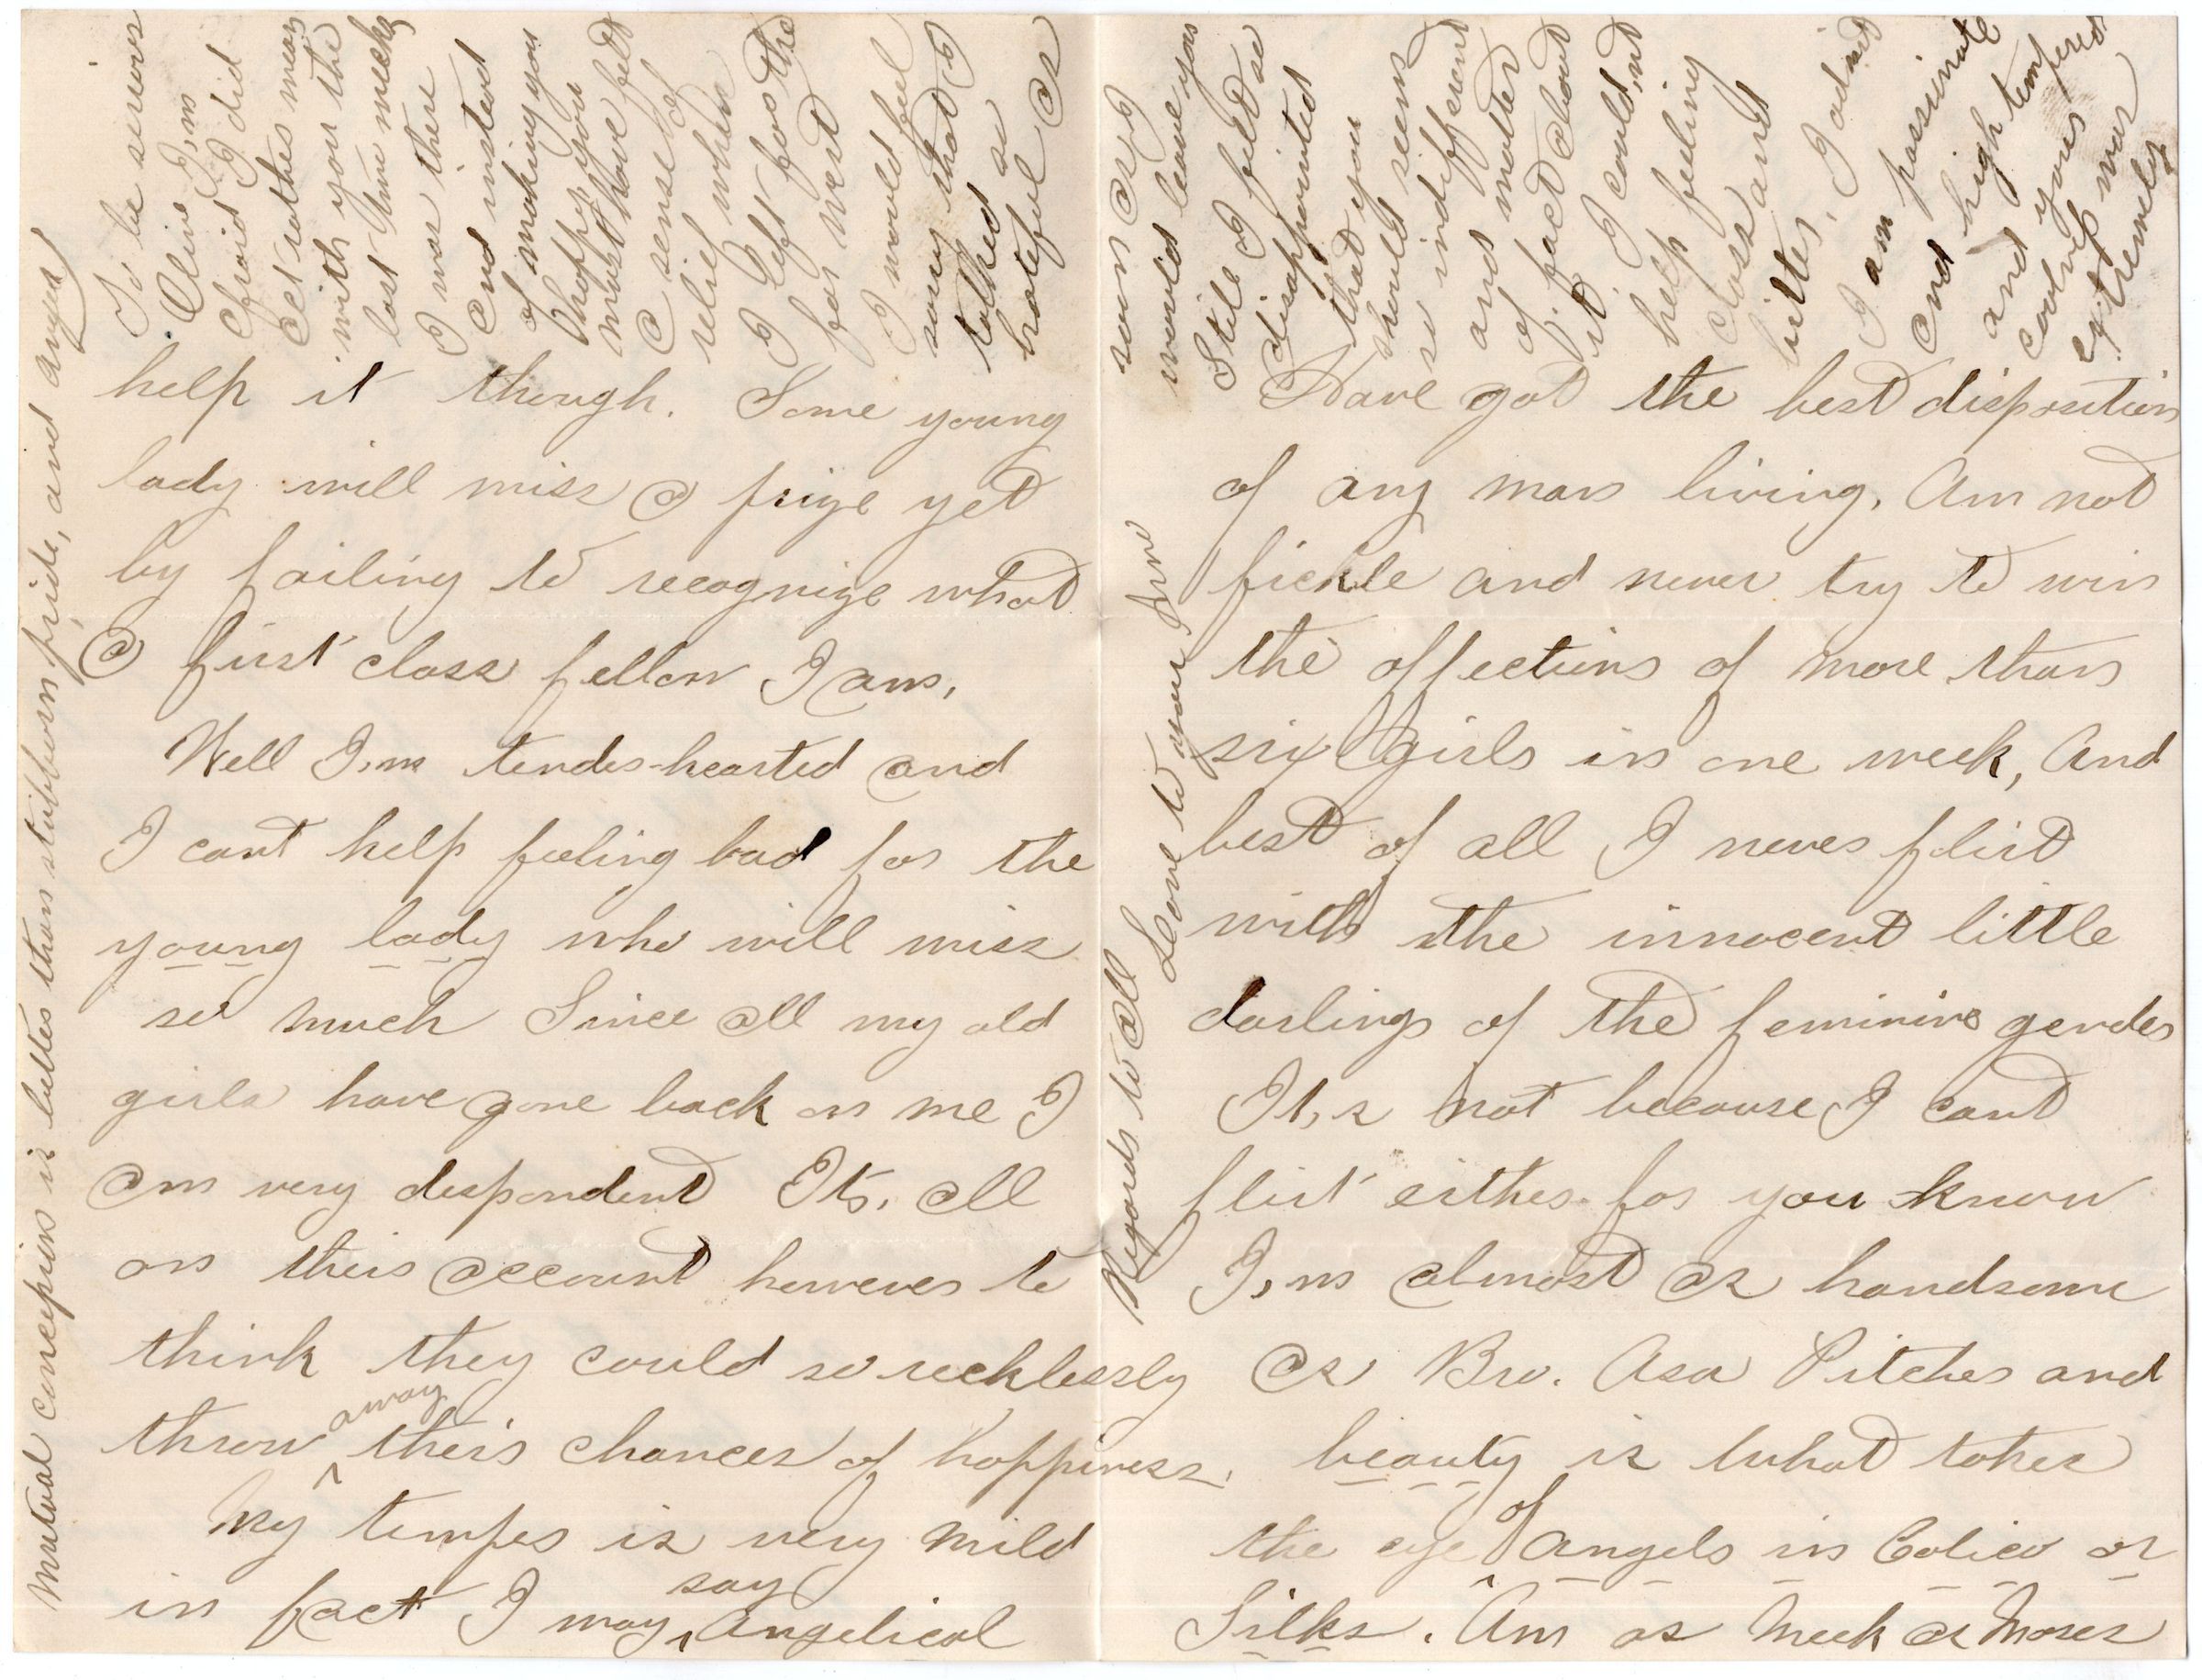 help it though. Some young
lady will miss a prize yet
by failing to recognize what
a first class fellow I am,
Well I,m tender-hearted and
I cant help feeling bad for the
young lady who will miss
so much Since all my old
girls have gone back on me I
am very despondent Its, all
on their account however to
think they could so recklessly
throw away their chances of happiness.
My temper is very mild
in fact I may say Angelical
Have got the best disposition
of any man living, Am not
fickle and never try to win
the affections of more than
six girls in one week, And
best of all I never flirt
with the innocent little
darlings of the feminine gender
It,s not because I cant
flirt either for you know
I,m almost as handsome
as Bro. Asa Pitcher and
beauty is what takes
the eye of Angels in Calico or
Silks. Am as Meek as Moses
To be serious
Olive I,m
afraid I did
act rather mean
with you the
last two weeks
I was there
and instead
of making you
happy you
must have felt
a sense of
relief when
I left for the
far west
I would feel
sorry that I
talked so
hateful as
soon as I
would leave you
Still I felt so
disappointed
that you
should seem
so indifferent
and matter
of fact about
it. I could,nt
help feeling
cross and
bitter, I admit
I am passionate
and high tempered
and your
coolness was
extremely
Mutual concessions is better than stubborn pride, and anger
Regards to all
Love to your Anne